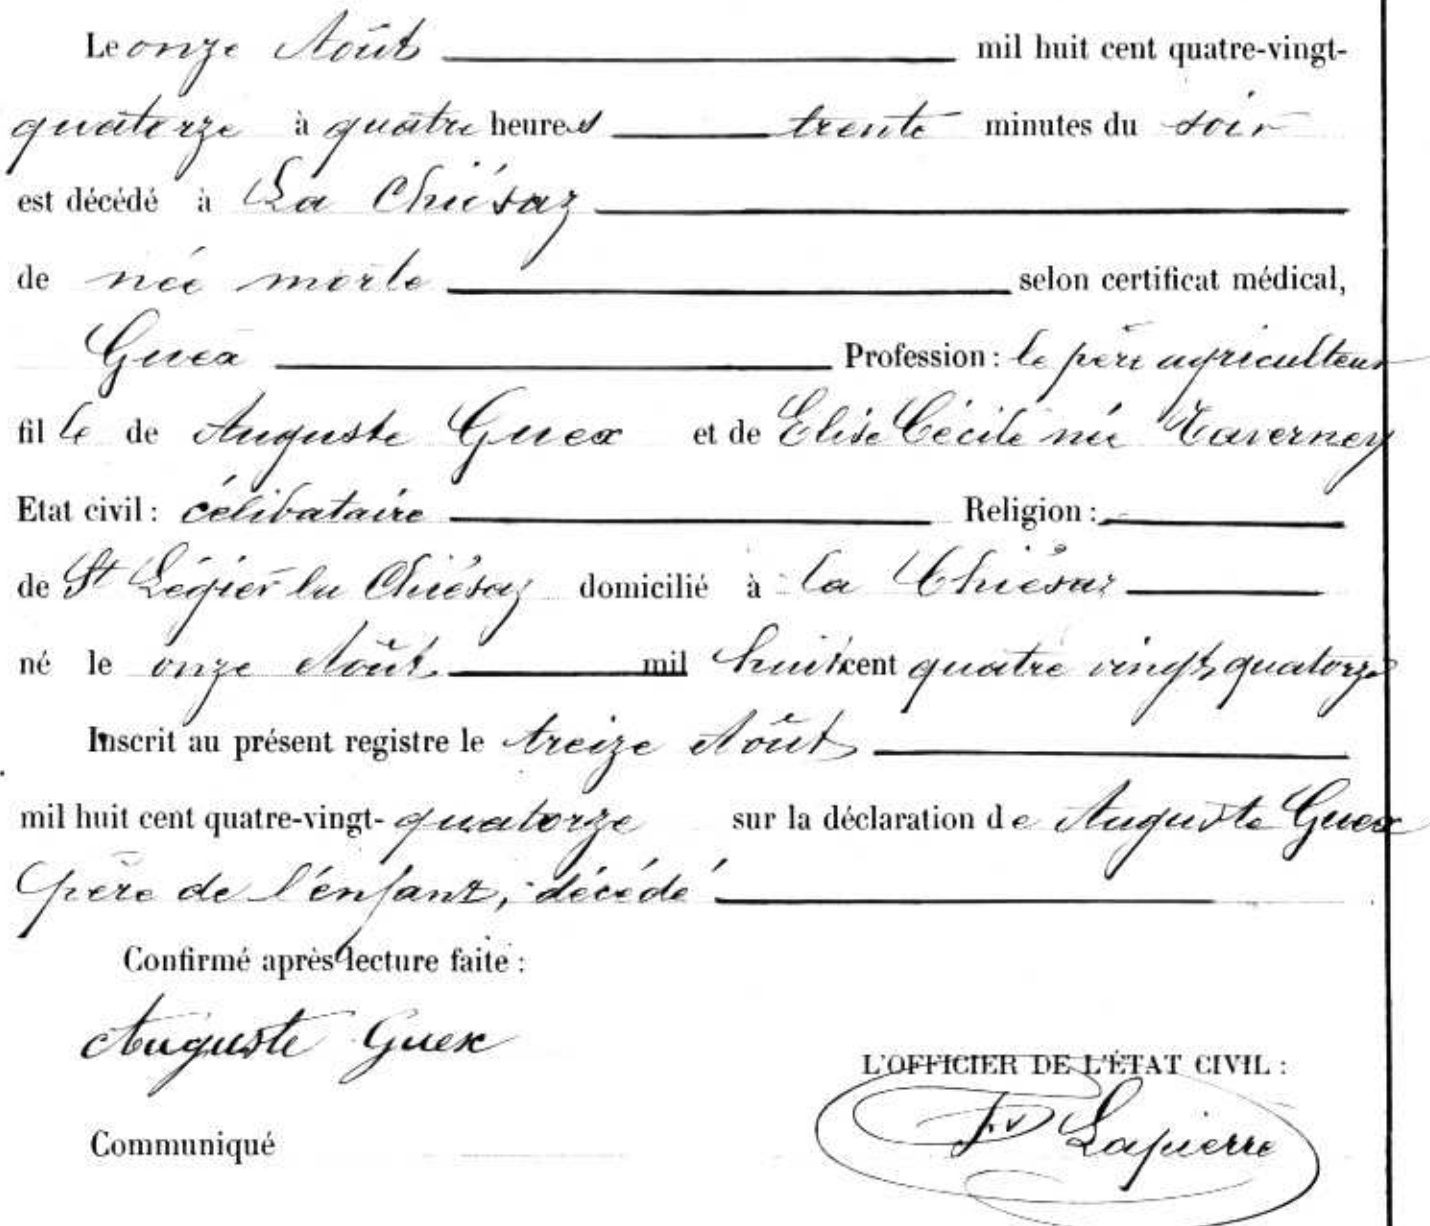 Le onze Août mil huit cent quatre-vingt-
quatorze à quatre heures trente minutes du soir
est décédé à La Chiésaz
de née morte selon certificat médical,
Guex Profession : le père agriculteur
fille de Auguste Guex et de Elise Cécile née Taverney
Etat civil : célibataire Religion :
de St Légier la Chiésaz domicilié à la Chiésaz
né le onze Août mil huit cent quatre vingt quatorze
Inscrit au présent registre le treize Août
mil huit cent quatre-vingt- quatorze sur la déclaration de Auguste Guex
père de l'enfant, décédé
Confirmé après lecture faite :
Auguste Guex
L'OFFICIER DE L'ÉTAT CIVIL :
Lapierre
Communiqué